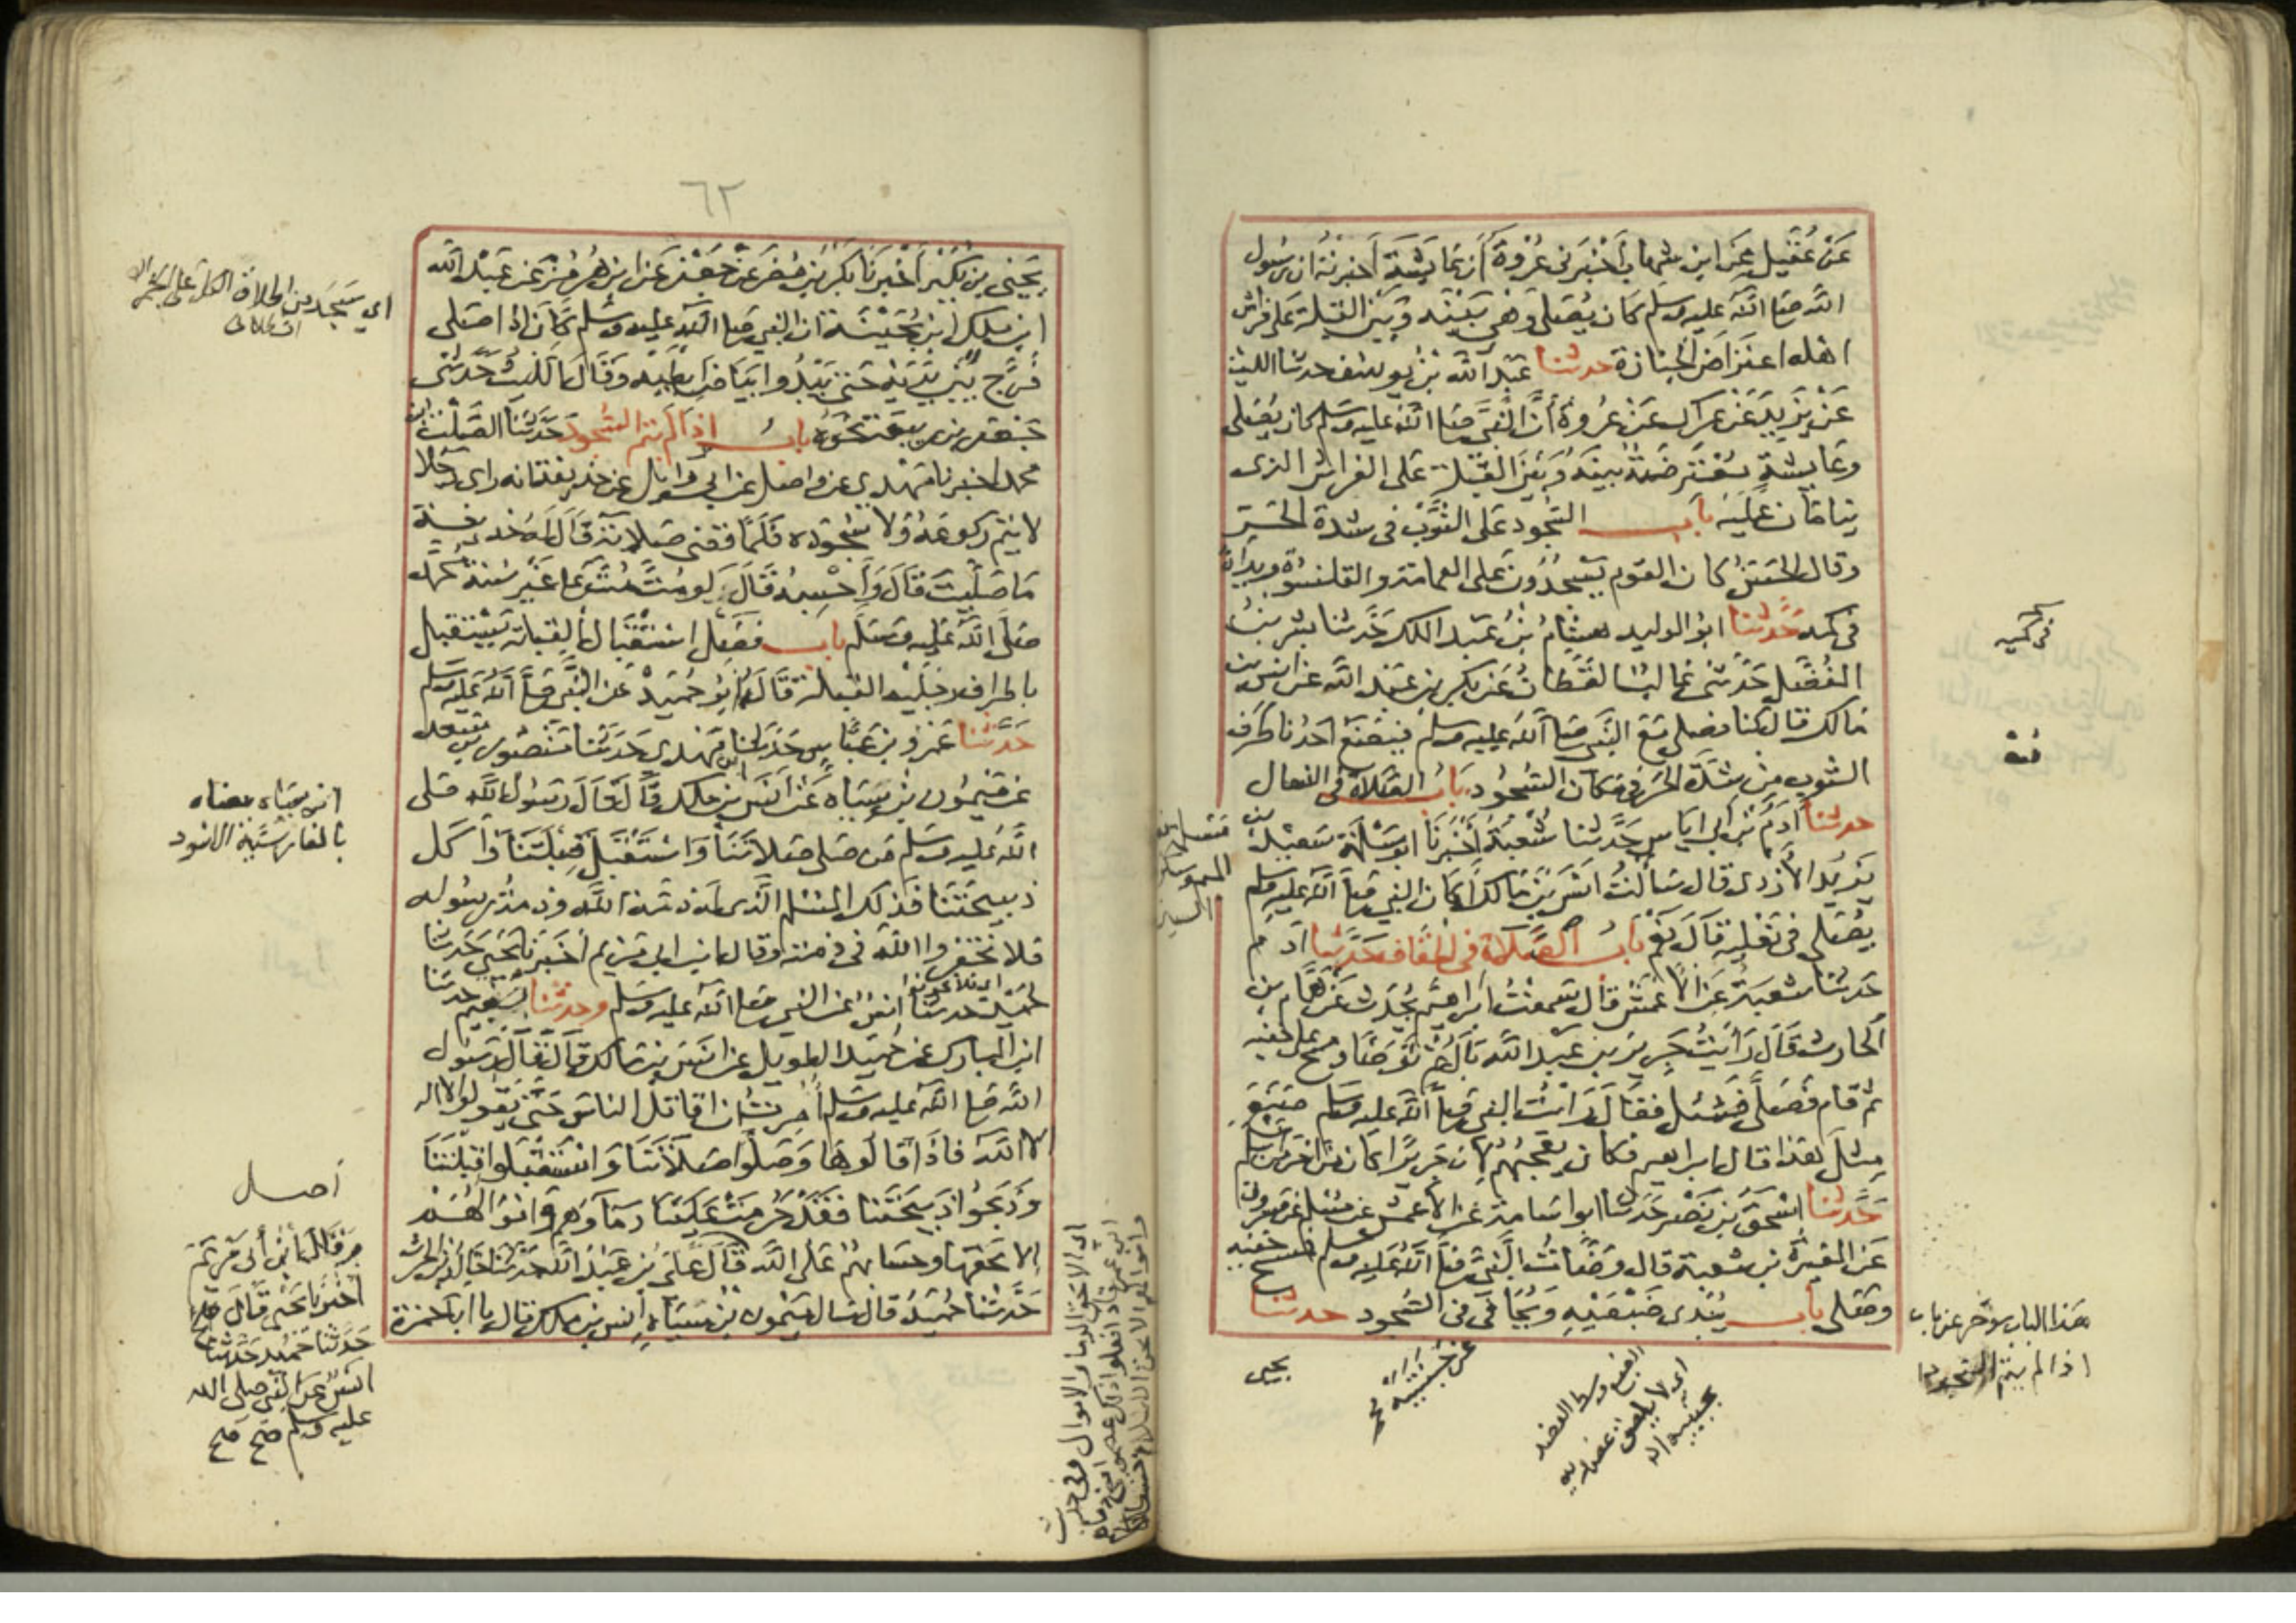 عَنْ عُقَيْلٍ عَنِ ابن شهاب أَخْبَرَنى عُرْوَةُ أن عَايشة أخبرته ان رسول
الله صلى الله عليه وسلم كان يُصَلى وَهى بَيْنَه وَبَيْن القبلة على فراش
اهله اعتراضَ الجنازة حدثنا عَبْدُ الله بْنُ يوسُف حدثنا الليث
عَنْ يَزِيدَ عَنْ عِراك عَنْ عُروة أنَّ النَّبىَّ صلى الله عليه وسلم كان يُصَلى
وعَايشة مُعْتَرِضَةٌ بينَهُ وبَيْنَ القبلة على الفراش الذى
ينامَان عليه باب السُّجود على الثَّوْب فى شدة الحَرّ
وقال الحَسَنُ كان القوم يَسْجُدُونَ على العمامة والقلنسُوة ويداه
فى كمه حَدَّثنا ابو الوليد هِشَامُ بْنُ عَبد الملك حَدَّثنا بشر بنُ
المُفَضَّل حَدَّثنى غالبٌ القَطَّانُ عَنْ بَكر بنِ عَبْدِ الله عن انس بن
مَالك قال كنا نصلى مَعَ النَّبى صلى الله عليه وسلم فيَضَعُ احَدُنا طَرَف
الثوب مِنْ شدَّة الحَر فى مَكان السُّجُود بَابُ الصَّلاة فى النعال
حدثنا آدَمُ بْنُ ابى اياس حَدَّثنا شُعْبَةُ أَخْبَرَنَا ابو مَسْلَمَة سَعِيدُ بن
يَزِيدُ الأَزدى قال سَألتُ انَسَ بْنَ مَالك أكان النبى صلى الله عليه وسلم
يُصَلى فى نَعْلَيه قَالَ نَعَمْ بَابُ الصَّلَاة فى الخفاف حَدَّثنا آدَمُ
حَدثنا شعبةُ عَنِ الأعمش قال سَمعْتُ ابراهيم يُحَدِّث عَنْ هَمَّام بن
الحارث قَالَ رَأَيْتُ جَرِيرَ بن عَبد الله بَالَ ثُمَّ تَوَضَّأ ومَسَحَ على خفيه
ثم قام فَصَلَّى فَسُئل فقَالَ رَأيْتُ النبى صلى الله عليه وسلم صَنَعَ
مِثلَ هَذا قال ابراهيم فكان يُعجبُهُم لأن جَريرًا كان مِن آخر مَن أسلم
حَدَّثنا اسْحقُ بْنُ نَصْر حَدثنا ابو اسَامة عن الأعمَش عن مُسْلم عن مَسْرُوق
عَنِ المغيرة بن شعبة قال وضَّأتُ النَّبىَّ صلى الله عليه وسلم فمسح خفيه
وصَلى باب يُبْدِى ضَبْعَيْهِ وَيُجَافى فى السُّجود حدثنا
يحيى
فى كميه
هَذا الباب مؤخر عن باب
اذا لم يتم السجود
٦٢
يَحيَى بن بُكَيْر أَخْبَرَنَا بَكْرُ بْنُ مُضَرَ عَنْ جَعْفَر عَن ابْنِ هُرمُز عَن عَبْدِ الله
ابن ملك ابن بُحَيْنَةَ ان النبى صلى الله عليه وسلم كان اذا صَلى
فَرَّج بَيْن يَدَيْه حَتى يَبْدُوا بَيَاضُ ابطَيْه وَقَالَ اللَّيثُ حَدَّثَنى
جَعْفَر بن ربيعة نَحْوَهُ باب اذا لم يتم السُّجود حَدَّثنا الصَّلْتُ بن
محمد اخبرنا مَهْدى عن واصل عن ابى وايل عن حُذيفة انه رأى رَجلا
لا يُتم ركوعَهُ وَلا سُجُودَه فَلَمَّا قضى صَلاته قَالَ لَهُ حُذيفة
مَا صَلَّيتَ قَالَ وَأَحْسِبُهُ قَالَ لَو مُتَّ مُتَّ عَلَى غَيْرِ سُنة محمد
صَلَّى الله عَلَيه وسَلم باب فَضْل اسْتقْبَال القِبلة يَسْتقبل
باطراف رجليه القبلة قاله ابُو حُمَيْد عَن النَّبى صلى الله عَليه وسلم
حَدَّثَنا عَمْرُو بن عَبَّاس حَدثنا ابن مَهْدى حَدَّثَنا مَنْصُور بن سعد
عن مَيْمُون بن سِيَاه عَنْ أنَس بن مالك قال قال رسُول الله صَلى
الله عَليه وسَلم مَن صَلى صَلاتَنَا وَاسْتَقْبَل قِبْلَتَنَا وَأكل
ذبيحَتَنَا فذلك المُسْلم الَّذى لَه ذمَّة الله وذمة رسُوله
فلا تخفروا الله فى ذمته وقال ابن ابى مَرْيَم أخبَرَنا يَحْيَى حَدثنا
حُمَيْد حدثنا انَسٌ عَن النبى صلى الله عليه وسلم وحدثنا نُعَيم حدثنا
ابن المبارك عن حُمَيْد الطويل عن انس بن مَالك قَالَ قَالَ رسُول
الله صلى الله عليه وسلم أُمِرتُ أن اقاتل الناسَ حَتَّى يَقُولوا لا اله
الا الله فاذَا قالوهَا وَصَلَّوا صَلاتنا وَاسْتقْبَلوا قِبْلَتَنَا
وَذبَحُوا ذَبيحَتَنا فَقَد حَرُمَت عَلَيْنَا دمَاؤهم وامْوالهُم
الا بحَقها وحسَابهُمْ عَلَى الله قَالَ عَلَىُّ بْنُ عَبدِ الله حَدَّثَنَا خالدُ بن الحرث
حَدَّثنا حُمَيدُ قال سَال مَيْمُون بْنُ سِيَاه انس بن ملك قال يا ابا حَمزة
اى
ابن سِيَاه معناه
بالفارسية الاسود
أصل
وَقَالَ ابْنُ أبى مَرْيَمَ
أَخْبَرَنا يَحْيى قَالَ
حَدَّثنا حُمَيْد حَدَّثنا
انَسٌ عَن النَّبى صلى الله
عليه وسلم صَحَّ صَحَّ